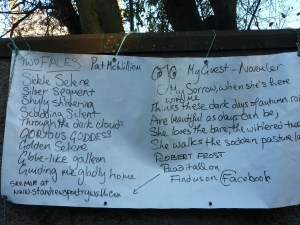 TWO FACES Pat McWillion
Sickle Selene
Silver Segment
Shyly shivering
Scudding Silent
Through the dark clouds
GORYOUS GODDESS
Golden Selene
Globe-like galleon
Guiding me gladly home
SEE MORE AT
www.standrewspoetrywall.com
My Guest - November
My Sorrow, when she's here
with me
Thinks these dark days of autumn rain
Are beautiful as days can be;
She loves the bare, the withered tree
She walks the sodden pasture
ROBERT FROST
Find us on Facebook